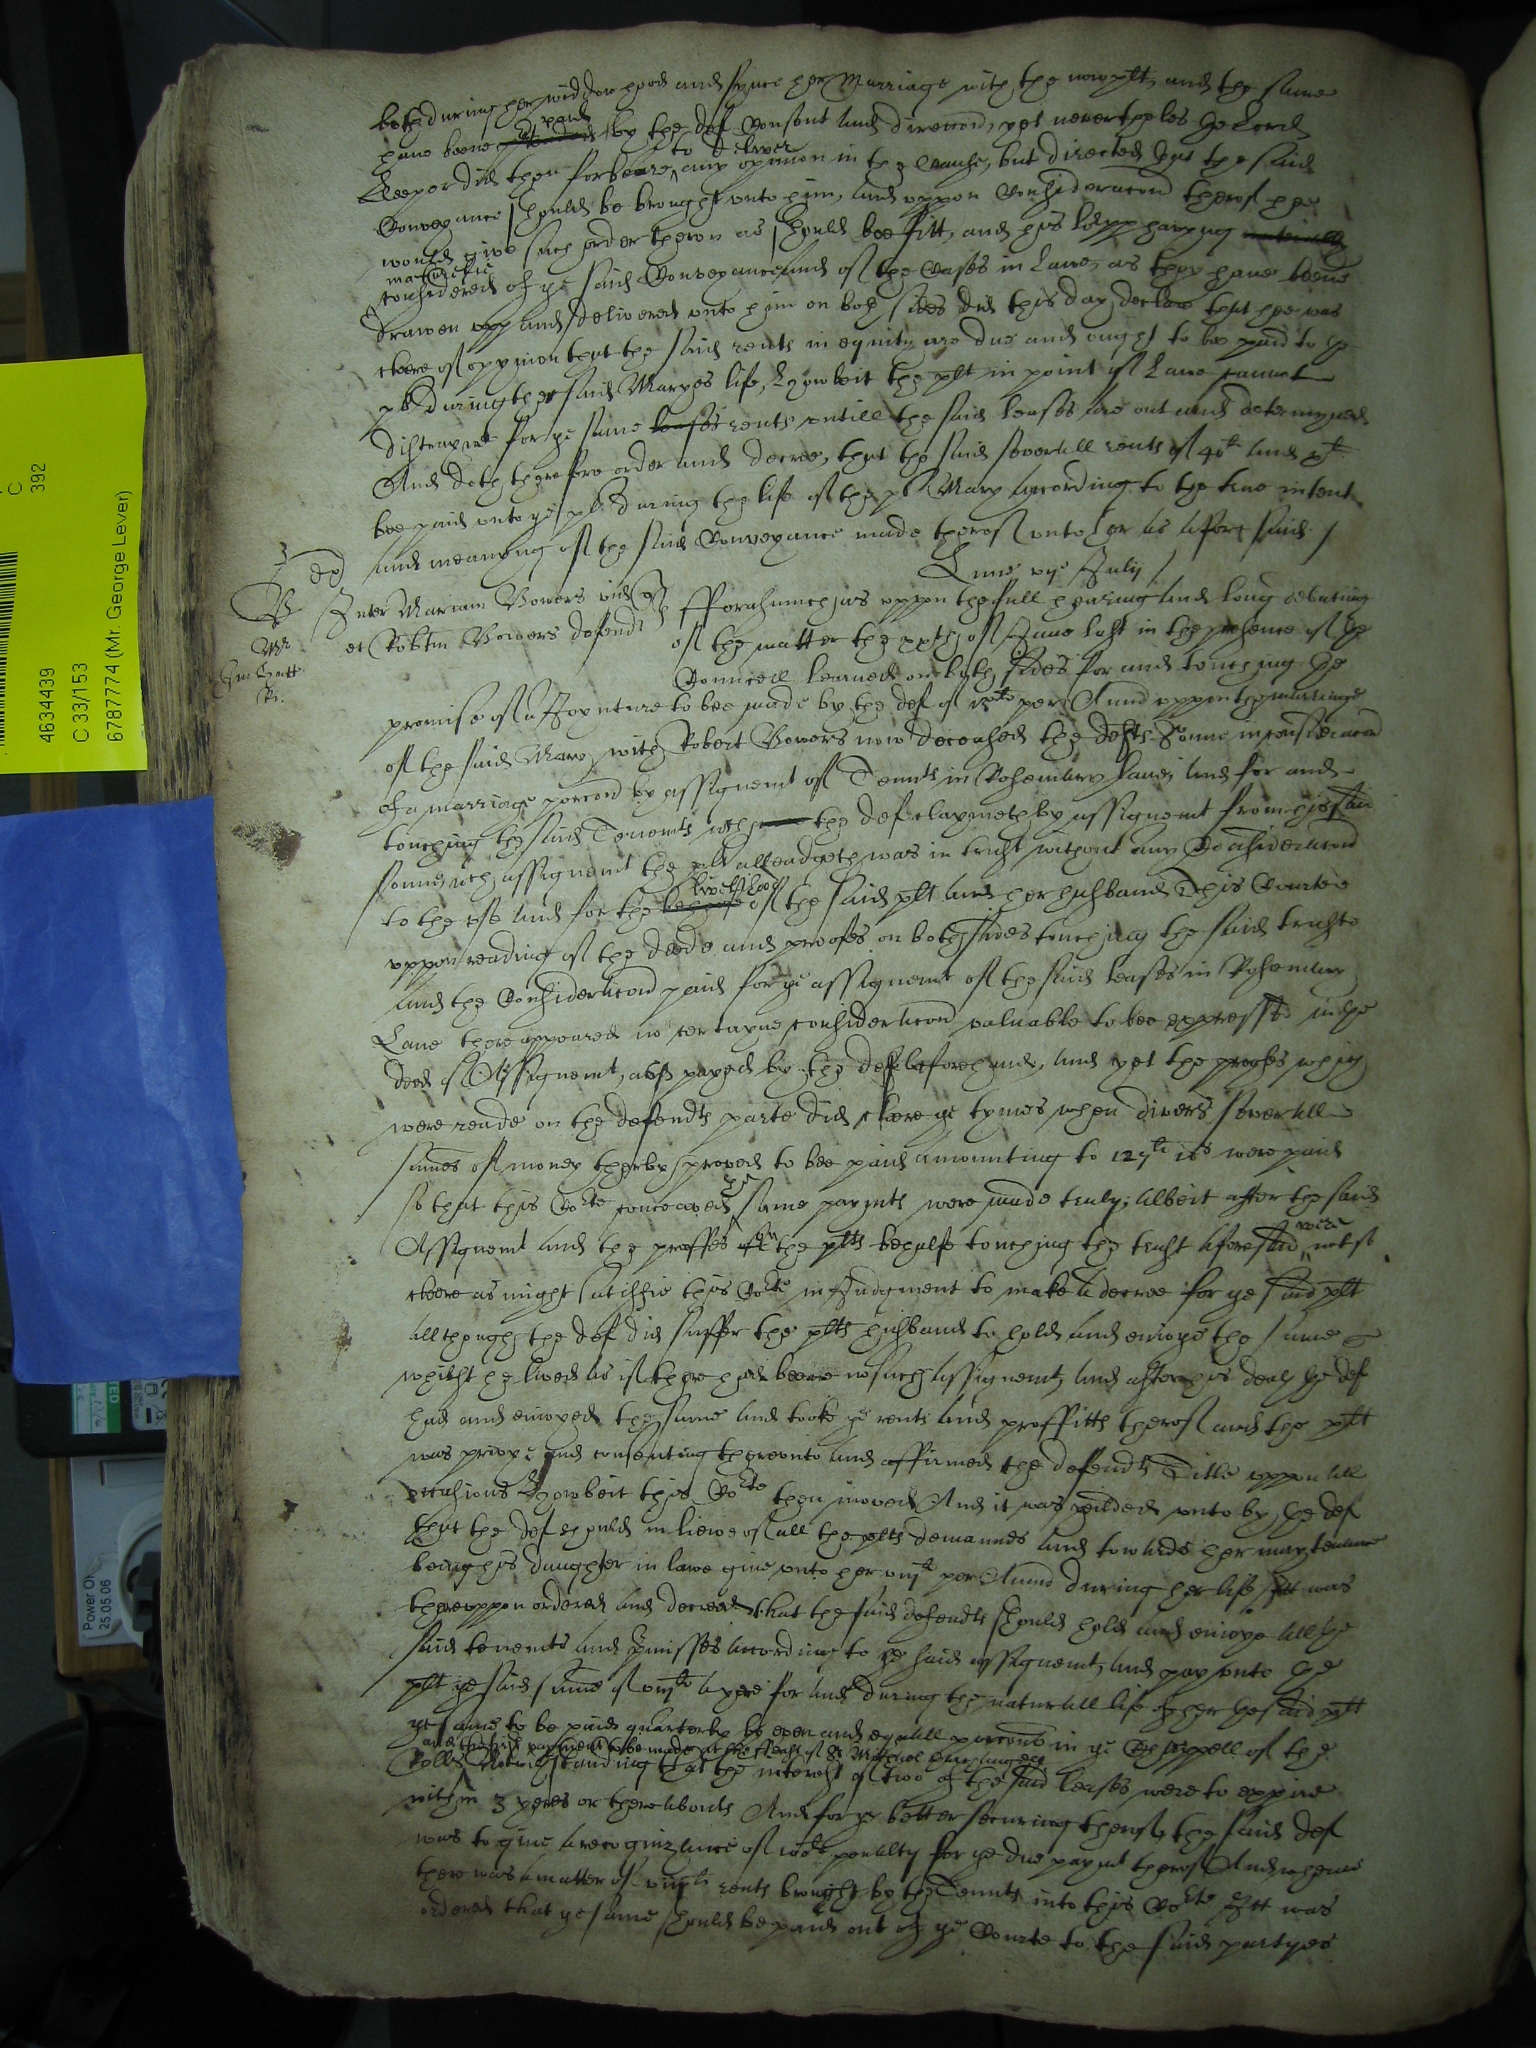 both during her widdowhood and synce her Marriage with the now plt, and the same
have beene paid by the def Consent and direccon, yet nevertheles the Lord
Keeper did then forbeare to deliver any opinion in the Cause, but directed that the said
Conveyance should be brought unto him, and uppon Consideracon therof hee
would give such order theron as should bee fitt, and his Lopp having
maturelie considered of ye said Conveyance and of the Cases in Lawe, as they have beene
drawen upp and delivered unto him on both sides did this day declare that hee was
cleere of oppynion that the said rents in equity are due and ought to be paid to ye
plt during the said Maryes life, Howbeit the plt in point of Lawe cannot
distrayne for ye same leases rents untill the said leases are out and determyned
And doth therefore order and decree, that the said severall rents of 40li and
bee paid unto ye plt during the life of the plt Mary according to the true intent
and meaning of the said Conveyance made therof unto her as aforesaid /
Lune July /
3
B
Inter Mariam Bowers vid quer
et Robtm Bowers defend
Forasmuch as uppon the full hearing and long debating
of the matter the xxth of June last in the presence of the
Councell learned on both sides for and touching the
promise of a Joynture to bee made by the def of per Annu uppon the marriage
of the said Mary with Robert Bowers now deceased the defts Sonne in consideracon
of a marriage porcon by assignemt of Tenmts in Rosemary Lane, and for and
touching the said Tenemts wch the def claymeth by assignemt from his said
sonne, wch assignemt the plt alleadgeth was in trust without any Consideracon
to the use and for the livelihood of the said plt and her husband This Courte
uppon reading of the deede and proofes on both sides touching the said truste
and the Consideracon paid for ye assignemt of the said leases in Rosemary
Lane there appeared no certayne consideracon valuable to bee expressed in the
deed of Assignemt, as payed by the def beforehand, and yet the proofes which
were reade on the defendts parte did cleere ye tymes when divers severall
sumes of money therby proved to bee paid amounting to 127li 10s were paid
so that this Cote conceaved the same paymts were made truly, albeit after the said
Assignemt and the proffes on the plts behalfe touching the trust aforesaid were not so
cleere as might satisfie this Cote in Judgment to make a decree for ye said plt
allthough the def did suffer the plts husband to hold and enioye the same
whilst he lived as if there had beene no such assignemt, and after his death ye def
had and enioyed the same and tooke ye rents and proffitts therof and the plt
was privye and consenting thereunto and affirmed the defendts Title uppon all
occasions Howbeit this Cote then moved And it was yeilded unto by the def
that the def should in liewe of all the plts demaunds and towards her mayntenance
being his daughter in lawe give unto her viijli per Annu during her life, Itt was
thereuppon ordered and decreed that the said defendt should hold and enioye all the
said tenemts and premisses according to ye said assignemt, and pay unto the
plt ye said sume of viijli a yere for and during the naturall life of her the said plt
ye same to be paid quarterly by even and equall porcons in ye Chappell of the
and the first payment to be made at the ffeast of St Michael
Rolls Notwithstanding that the interest of two of the said leases were to expire
within 3 yeres or thereabouts And for ye better securing therof, the said def
was to give a recognizance of 100li penalty for ye due paymt therof And wheras
there was a matter of viijli rents brought by the Tennts into this Cote Itt was
ordered that ye same should be paid out of ye Courte to the said partyes
C
392
4634439
C 33/153
67877774 (Mr. George Lever)
Power O
25.05.06